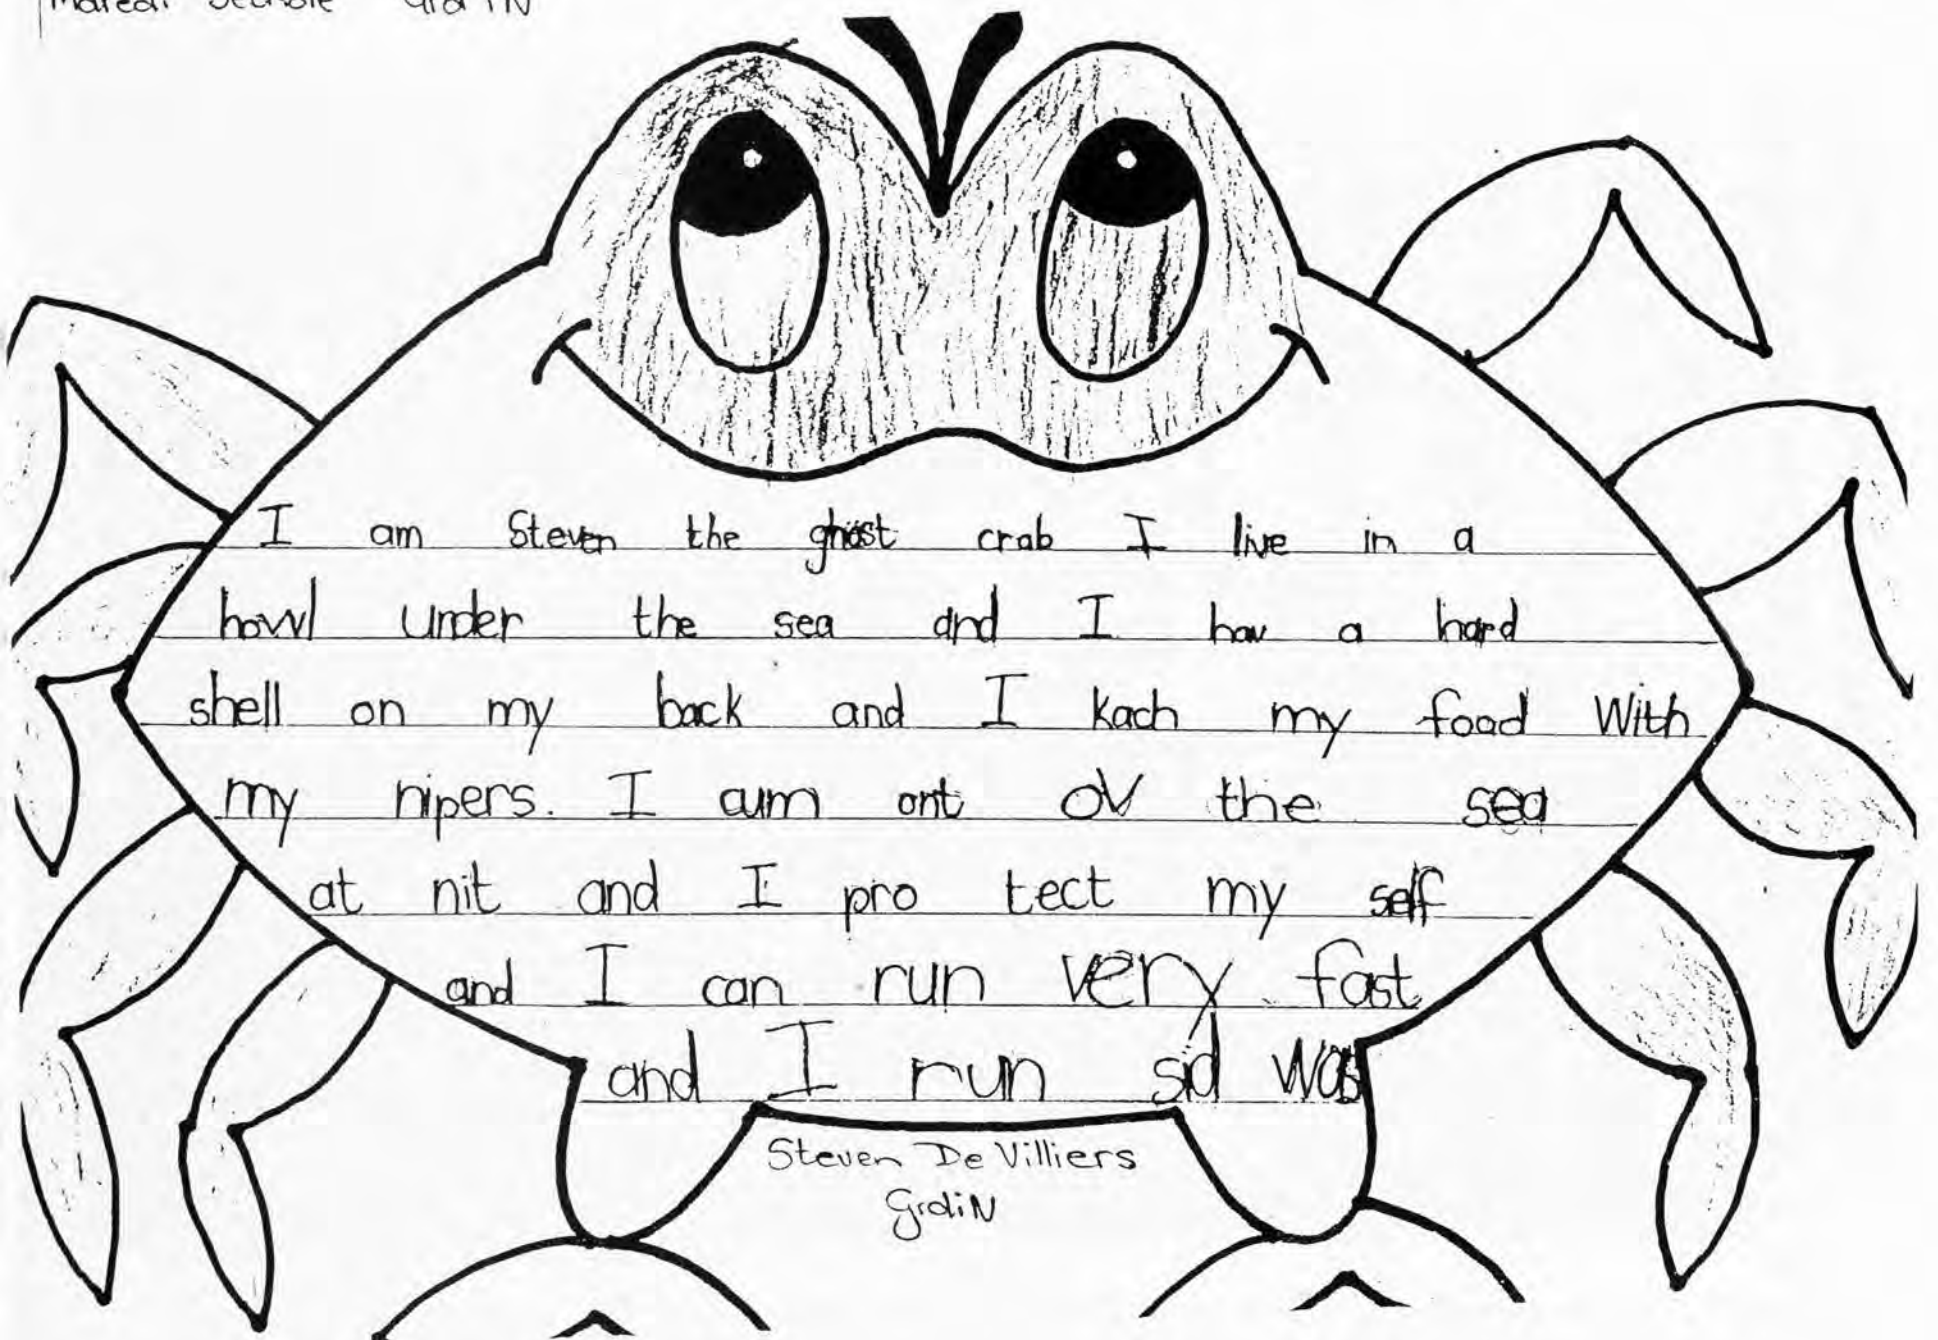 I am Steven the ghost crab I live in a
howl under the sea and I hav a hard
shell on my back and I kach my food With
my nipers. I cum ont ov the sea
at nit and I pro tect my self
and I can run very fast
and I run sid was
Steven De Villiers
Gr1N